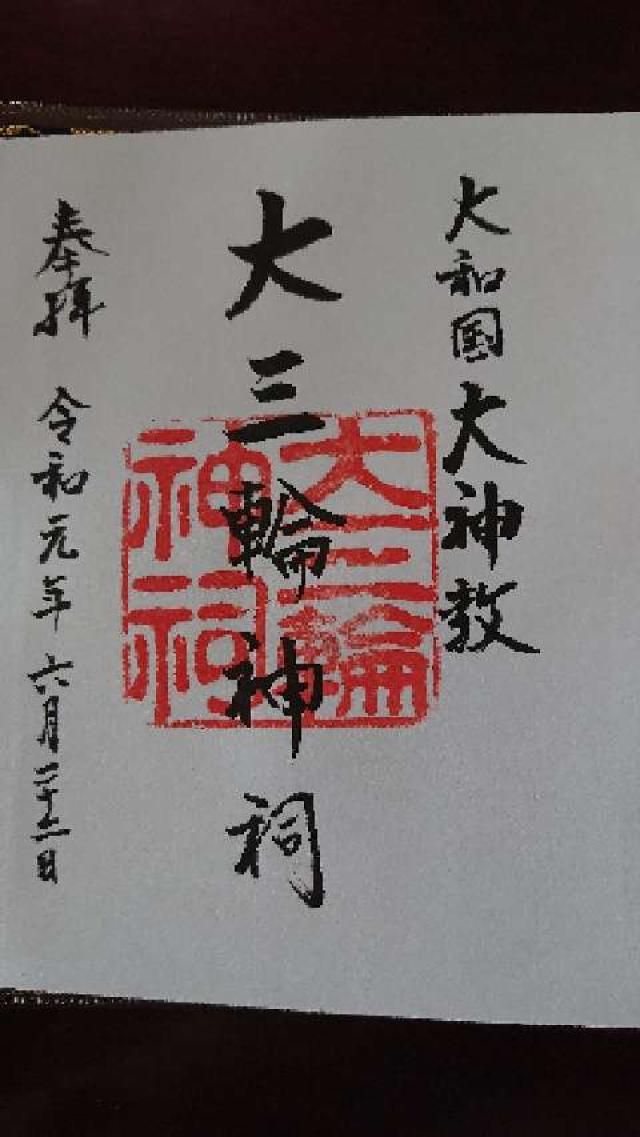 大和国大神教
大三輪神祠
大三輪
神祠
奉拝 令和元年六月二十二日